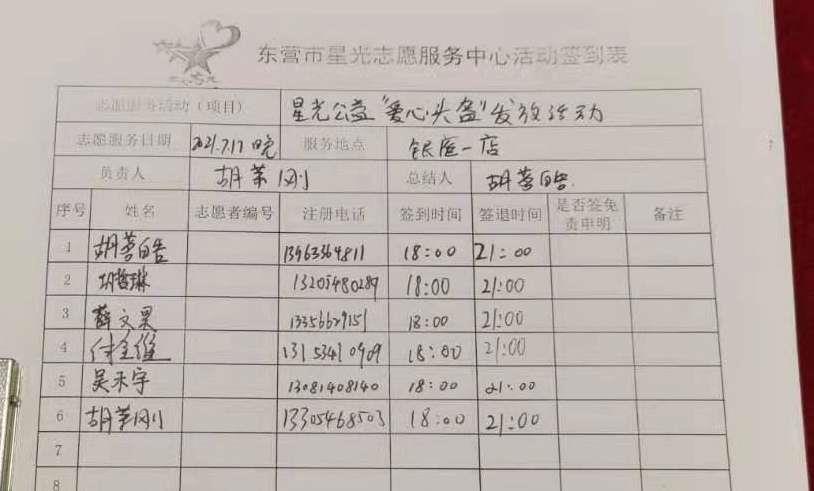 东营市星光志愿服务中心活动签到表
志愿服务活动（项目） 星光公益"爱心头盔"发放活动
志愿服务日期 2021.7.17晚 服务地点 银座一店
负责人 胡荣刚 总结人 胡善皓
序号 姓名 志愿者编号 注册电话 签到时间 签退时间 是否签免责申明 备注
1 胡善皓 13963369811 18:00 21:00
2 胡哲琳 13205480289 18:00 21:00
3 薛文昊 13356629151 18:00 21:00
4 付金维 18:00 21:00
5 吴禾宇 13081408140 18:00 21:00
6 胡荣刚 13305468503 18:00 21:00
7
8